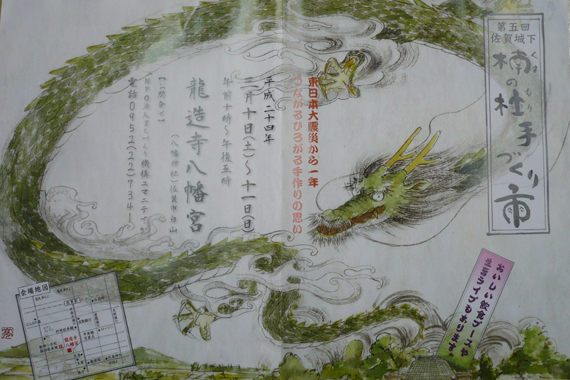 第五回
佐賀城下
楠の杜手づくり市
くす もり
東日本大震災から一年
つながるひろがる手作りの思い
平成二十四年
三月十日(土)～十一日(日)
午前十時～午後五時
龍造寺八幡宮
(八幡神社) 佐賀市白山
【お問合せ】
電話0952(22)7341
おいしい飲食ブースや
生音ライブもあります
会場地図